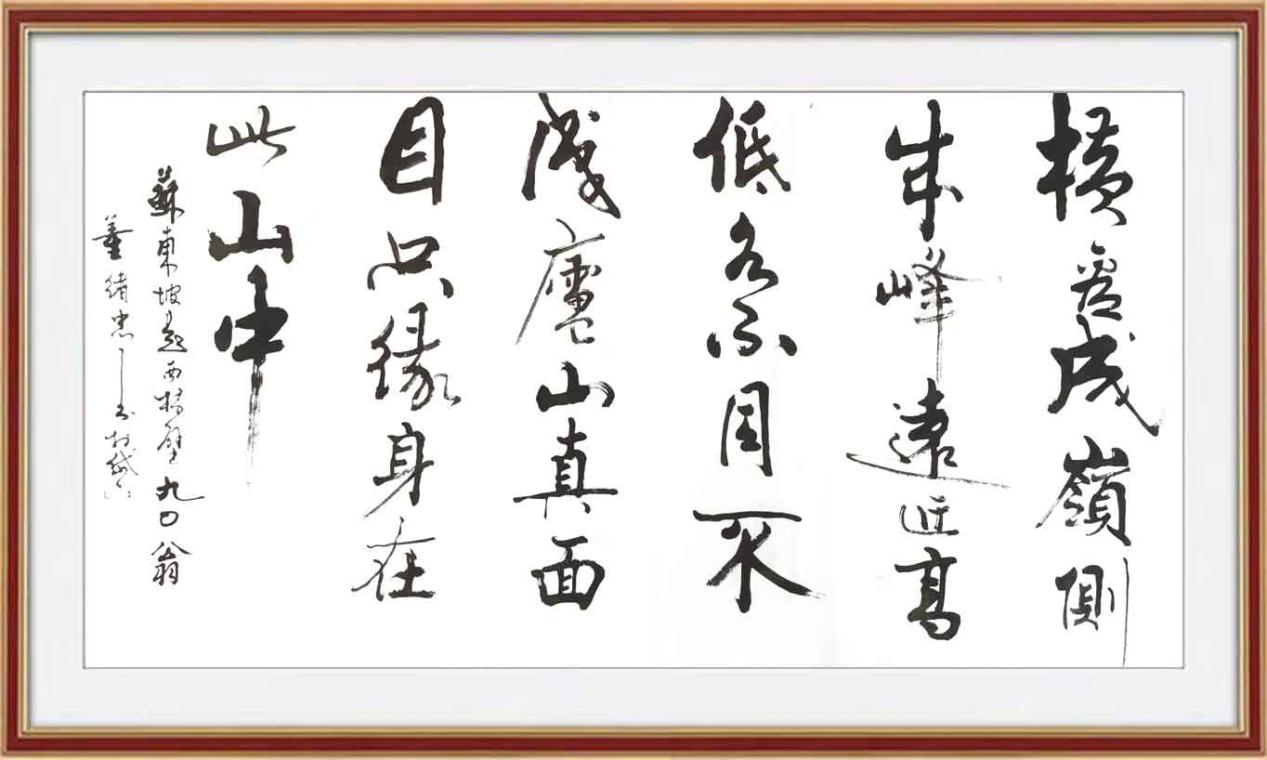 橫看成嶺側
成峰遠近高
低各不同不
識廬山真面
目只緣身在
此山中
蘇東坡題西林壁九〇翁
董緒忠書於